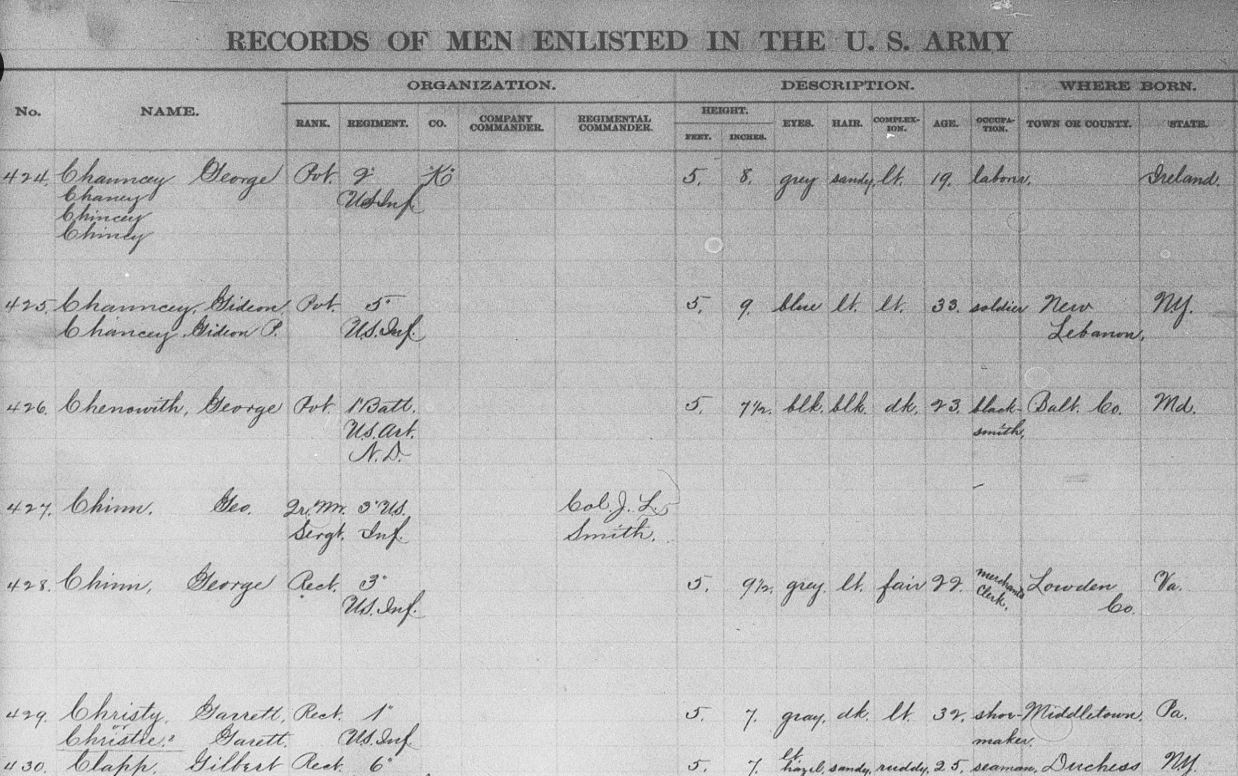 RECORDS OF MEN ENLISTED IN THE U. S. ARMY
ORGANIZATION. DESCRIPTION. WHERE BORN.
No. NAME. RANK. REGIMENT. CO. COMPANY COMMANDER. REGIMENTAL COMMANDER. HEIGHT. FEET. INCHES. EYES. HAIR. COMPLEX-ION. AGE. OCCUPA-TION. TOWN OR COUNTY. STATE.
424. Chauncey George Pvt. 2" "K" 5. 8. grey sandy, lt. 19. labour. Ireland.
Chaney U.S. Inf.
Chincey
Chiney
425. Chauncey, Gideon, Pvt. 5" 5. 9. blue lt. lt. 33. soldier New N.Y.
Chancey, Gideon P. U.S. Inf. Lebanon,
426. Chenowith, George Pvt. 1"Batt. 5. 7½. blk. blk. dk. 23. black- Balt. Co. Md.
U.S. Art. smith,
N.D.
427. Chinn. Geo. Qr. Mr. 3" U.S. Col. J. L.
Sergt. Inf. Smith.
428. Chinn, George Rect. 3" 5. 9½. grey lt. fair 22. merchant's Lowden Va.
U.S. Inf. Clerk. Co.
429. Christy, Garrett, Rect. 1" 5. 7. gray, dk. lt. 32. shoe- Middletown, Pa.
or
Christie. Garett. U.S. Inf maker,
430. Clapp, Gilbert Rect. 6" 5. 7. lt. hazel, sandy, ruddy, 25, seaman, Duchess N.Y.